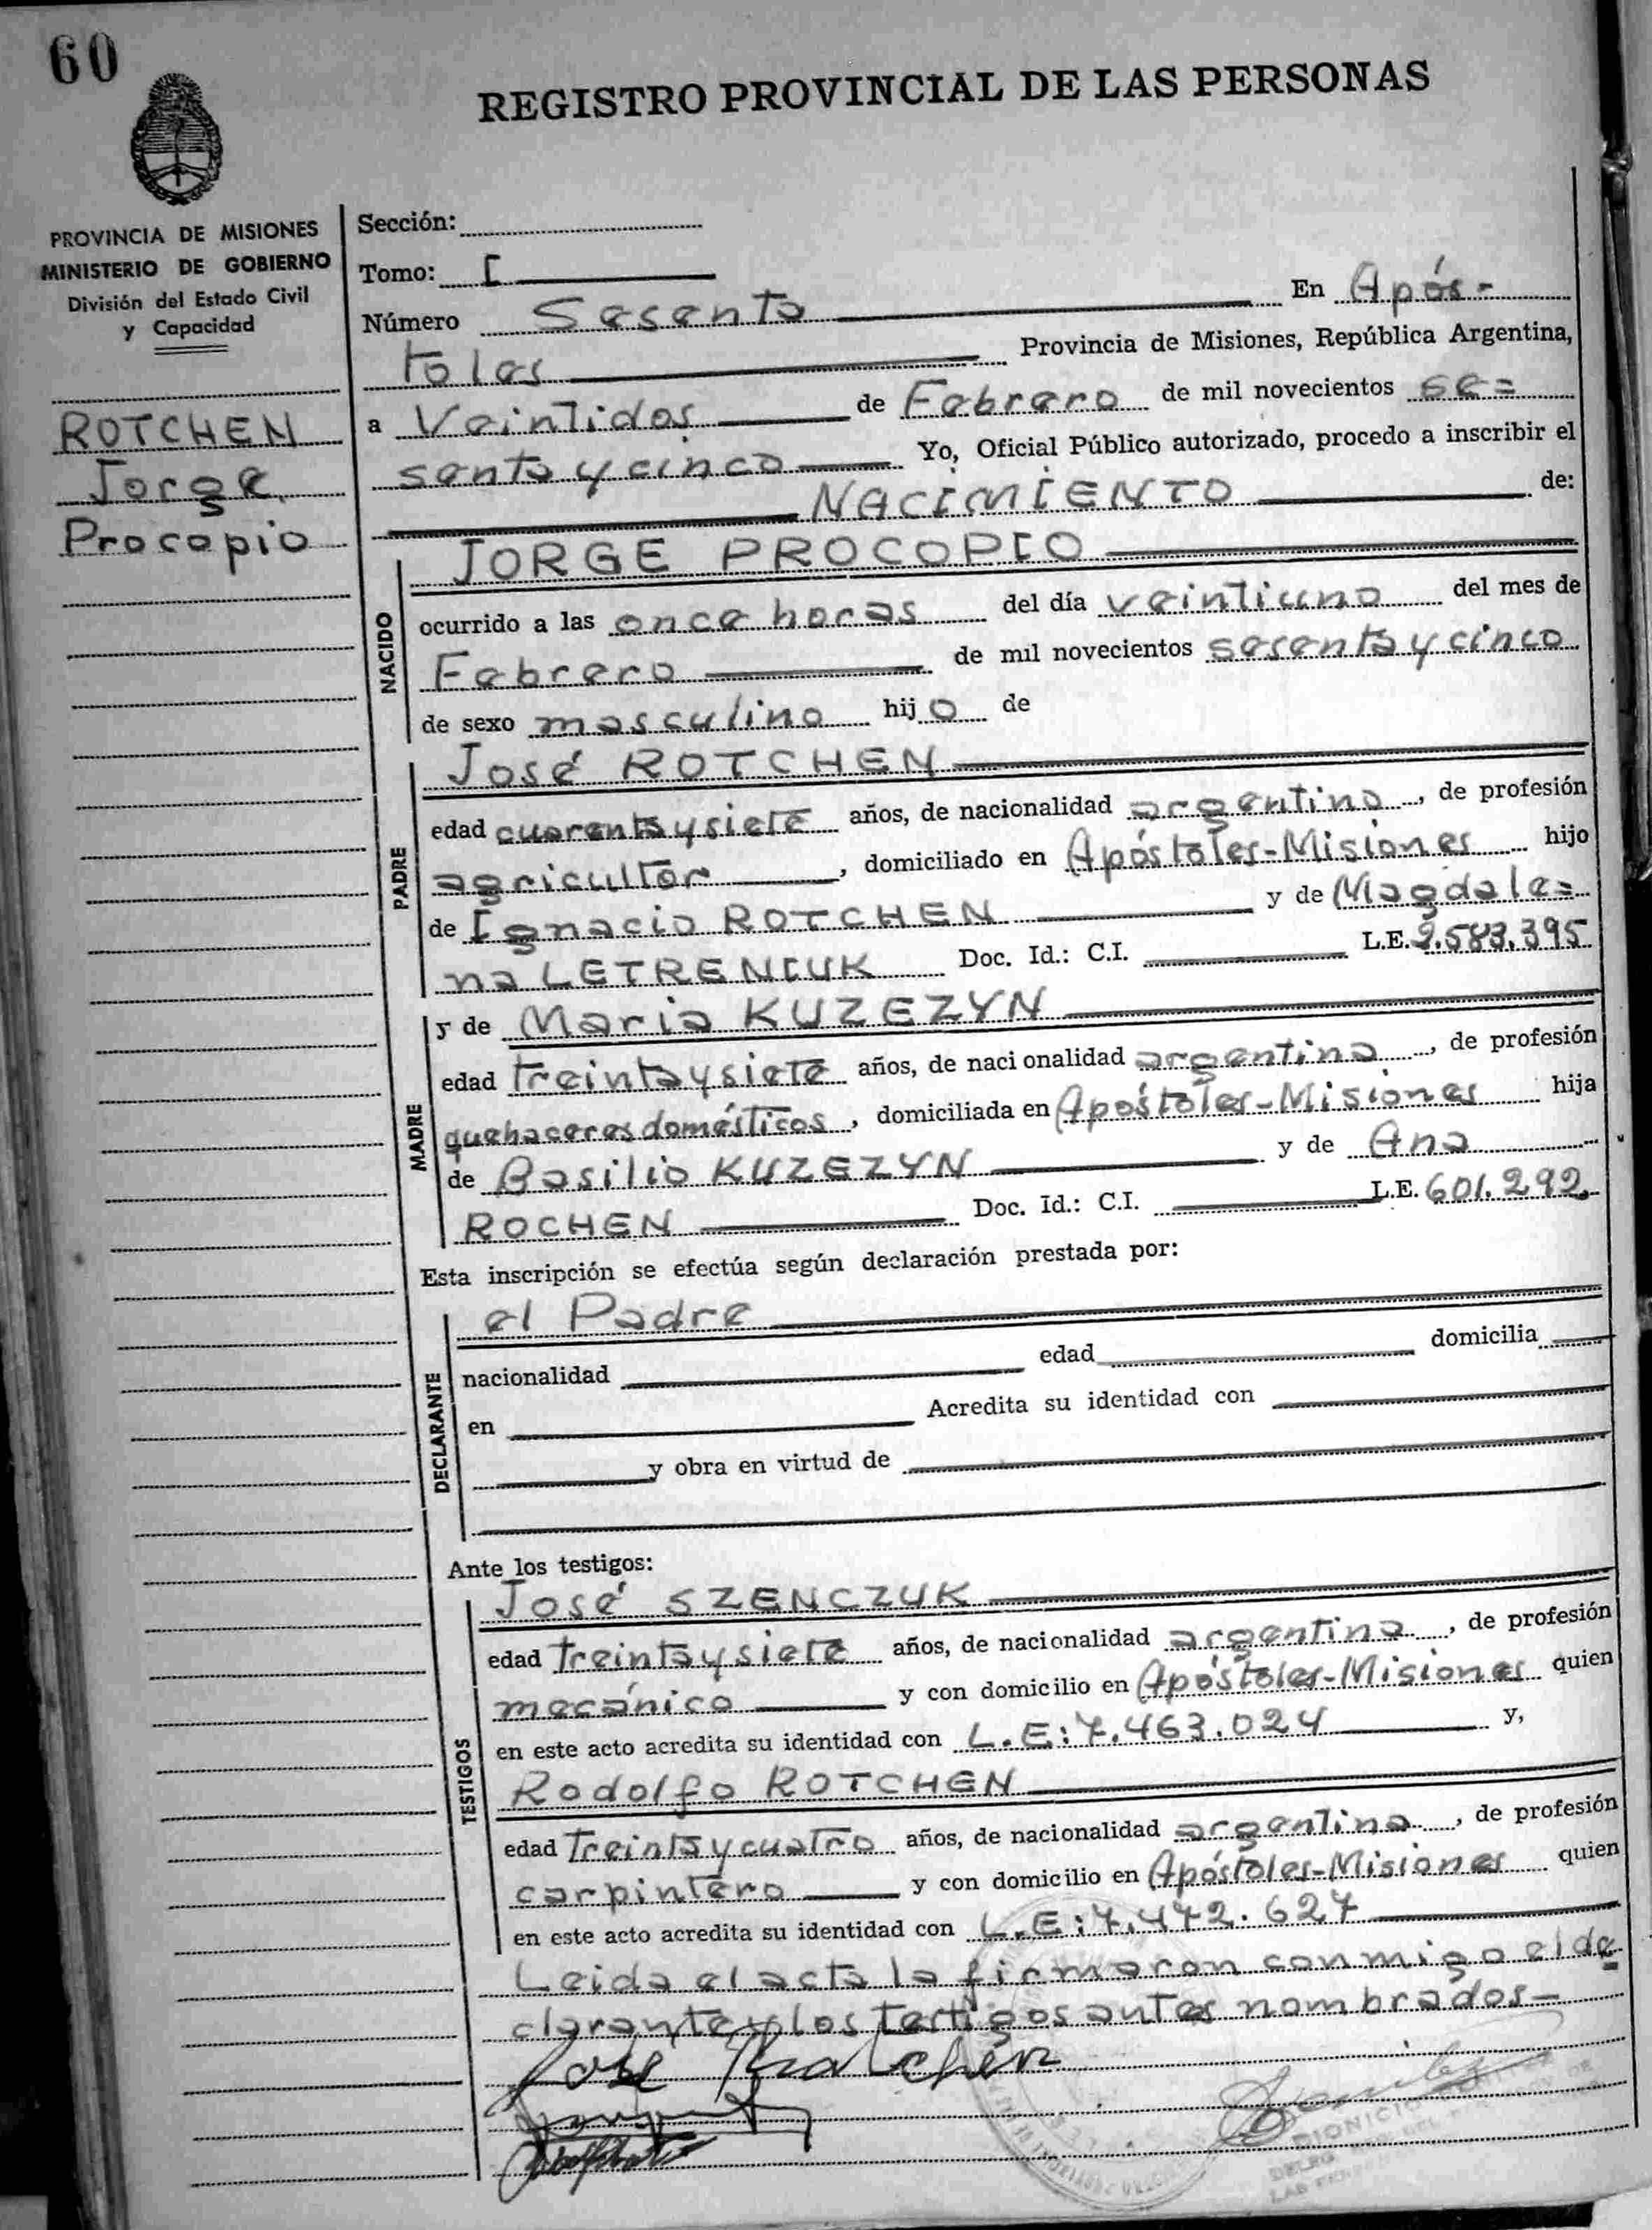 60
REGISTRO PROVINCIAL DE LAS PERSONAS
PROVINCIA DE MISIONES
MINISTERIO DE GOBIERNO
División del Estado Civil
y Capacidad
ROTCHEN
Jorge
Procopio
Sección:
Tomo: I
Número Sesenta En Após-
toles Provincia de Misiones, República Argentina,
a Veintidos de Febrero de mil novecientos se=
senta y cinco Yo, Oficial Público autorizado, procedo a inscribir el
NACIMIENTO de:
NACIDO
JORGE PROCOPIO
ocurrido a las once horas del día veintiuno del mes de
Febrero de mil novecientos sesenta y cinco
de sexo masculino hijo de
PADRE
José ROTCHEN
edad cuarenta y siete años, de nacionalidad argentina, de profesión
agricultor, domiciliado en Apóstoles-Misiones hijo
de Ignacio ROTCHEN y de Magdale=
na LETRENIUK Doc. Id.: C.I. L.E. 2.583.395
MADRE
y de Maria KUZEZYN
edad treinta y siete años, de nacionalidad argentina, de profesión
quehaceres domésticos, domiciliada en Apóstoles-Misiones hija
de Basilio KUZEZYN y de Ana
ROCHEN Doc. Id.: C.I. L.E. 601.292.
Esta inscripción se efectúa según declaración prestada por:
DECLARANTE
el Padre
nacionalidad edad domicilia
en Acredita su identidad con
y obra en virtud de
Ante los testigos:
TESTIGOS
José SZENCZUK
edad treinta y siete años, de nacionalidad argentina, de profesión
mecánico y con domicilio en Apóstoles-Misiones quien
en este acto acredita su identidad con L.E: 7.463.024 y,
Rodolfo ROTCHEN
edad treinta y cuatro años, de nacionalidad argentina, de profesión
carpintero y con domicilio en Apóstoles-Misiones quien
en este acto acredita su identidad con L.E: 7.472.627
Leida el acta la firmaron conmigo el de
clarante y los testigos antes nombrados-
José
DIONICIO